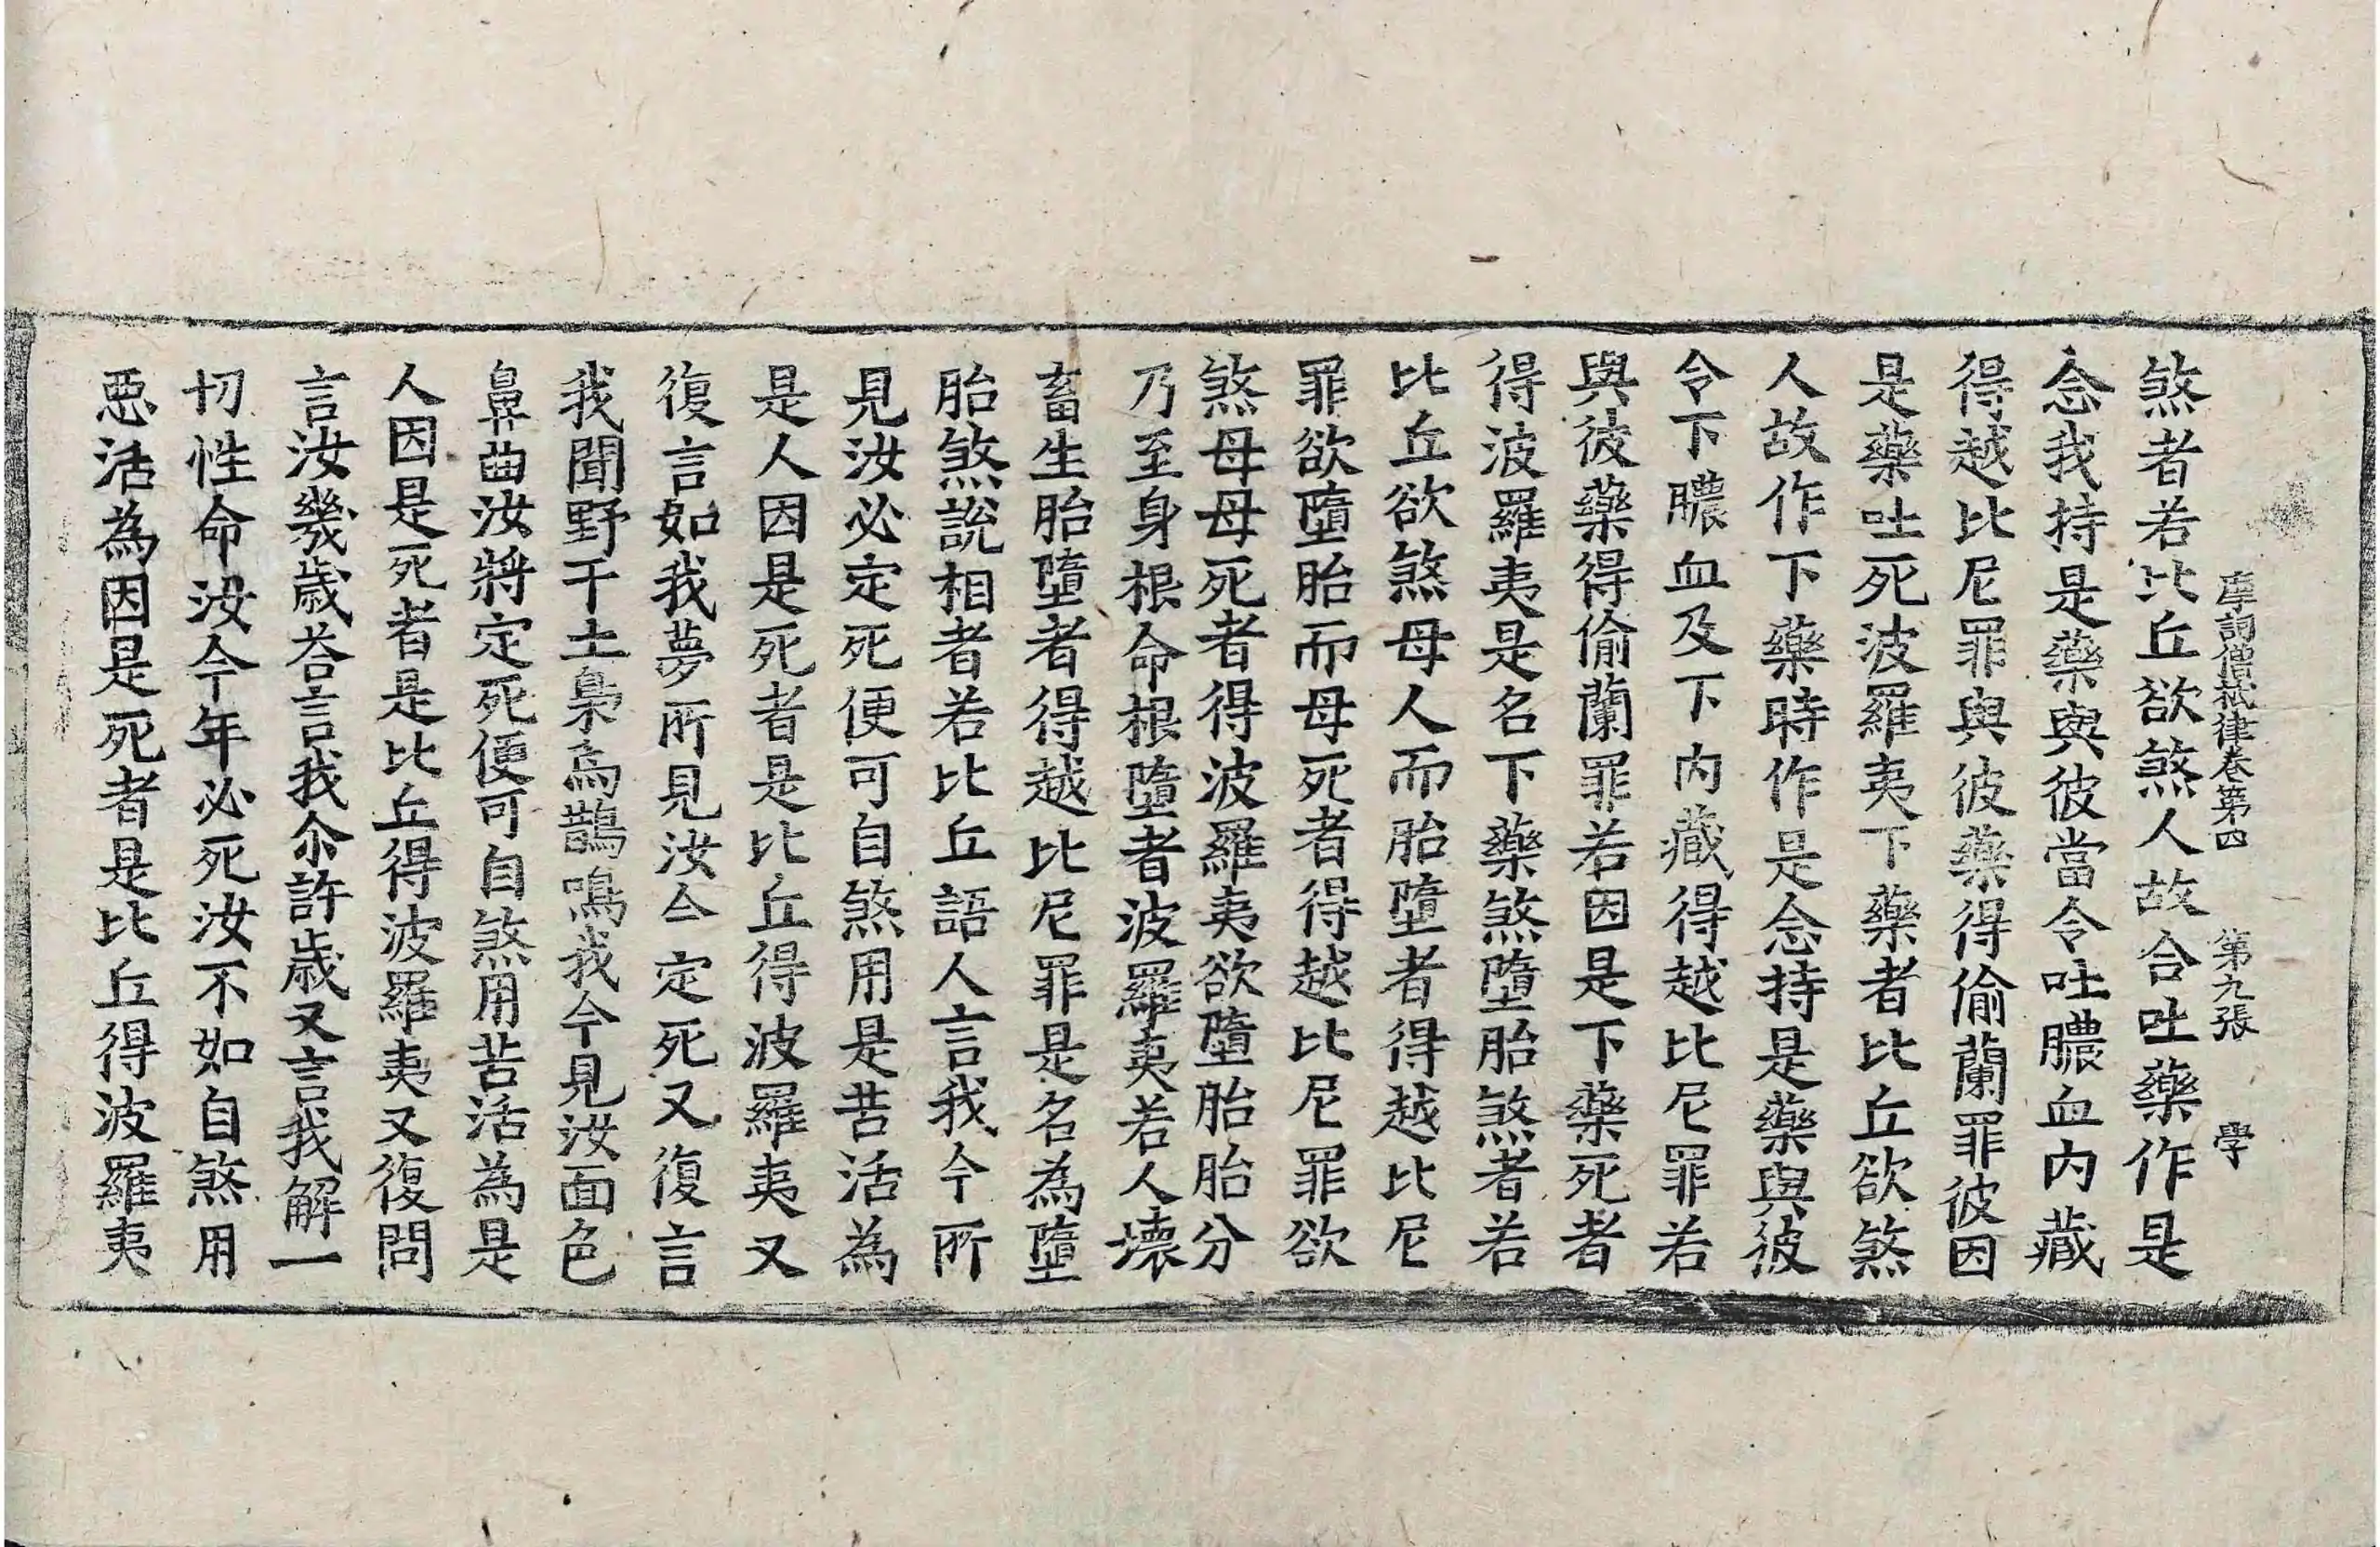 摩訶僧祇律卷第四　第九張　學
煞者若比丘欲煞人故合吐藥作是
念我持是藥與彼當令吐膿血內藏
得越比尼罪與彼藥得偷蘭罪彼因
是藥吐死波羅夷下藥者比丘欲煞
人故作下藥時作是念持是藥與彼
令下膿血及下內藏得越比尼罪若
與彼藥得偷蘭罪若因是下藥死者
得波羅夷是名下藥煞墮胎煞者若
比丘欲煞母人而胎墮者得越比尼
罪欲墮胎而母死者得越比尼罪欲
煞母母死者得波羅夷欲墮胎胎分
乃至身根命根墮者波羅夷若人壞
畜生胎墮者得越比尼罪是名為墮
胎煞說相者若比丘語人言我今所
見汝必定死便可自煞用是苦活為
是人因是死者是比丘得波羅夷又
復言如我夢所見汝今定死又復言
我聞野干土梟烏鵲鳴我今見汝面色
鼻曲汝將定死便可自煞用苦活為是
人因是死者是比丘得波羅夷又復問
言汝幾歲荅言我尒許歲又言我解一
切性命汝今年必死汝不如自煞用
惡活為因是死者是比丘得波羅夷